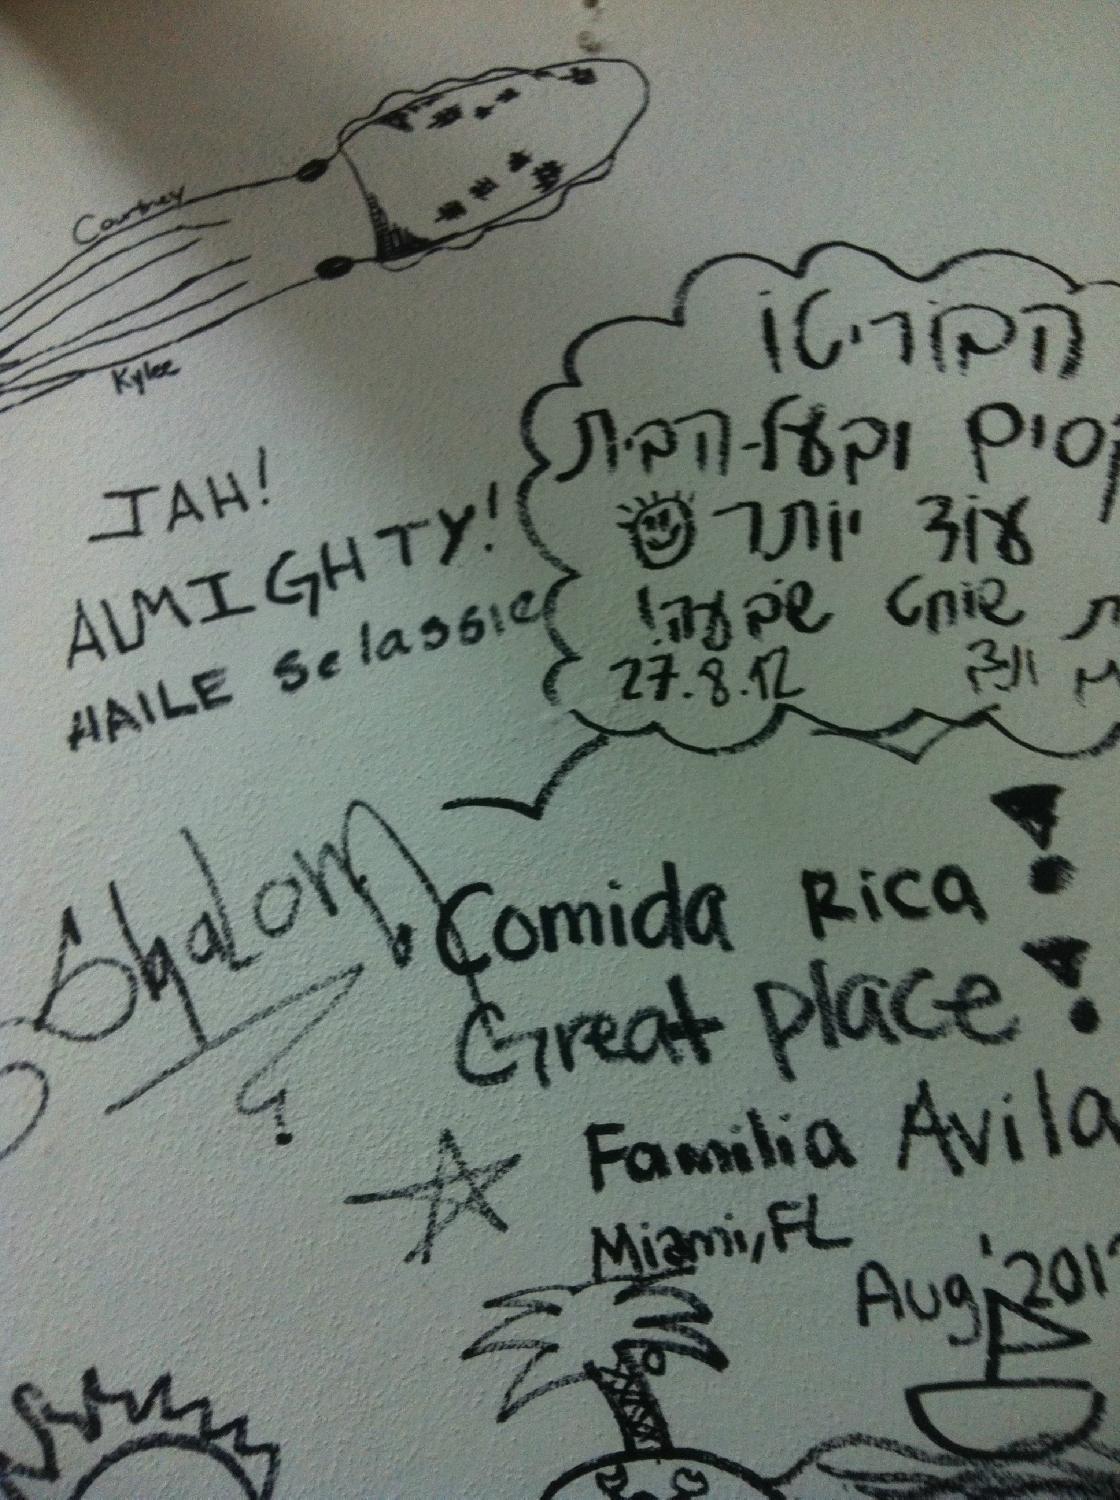 Courtney
Kylee
JAH!
ALMIGHTY!
HAILE Selassie
הבוריטו
קסים ובעל-הבית
עוד יותר
שווחט שבעה!
27.8.12
Shalom
Comida Rica!
Great place!
Familia Avila
Miami, FL
Aug '201